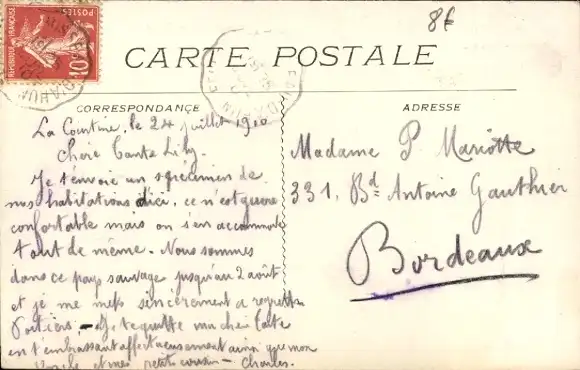 8f
POSTES
REPUBLIQUE FRANÇAISE
10
CARTE POSTALE
CORRESPONDANCE
La Courtine, le 24 juillet 1910
Chère Tante Lily
Je t'envoie un spécimen de
nos habitations d'ici, ce n'est guère
confortable mais on s'en accommode
tout de même. Nous sommes
dans ce pays sauvage jusqu'au 2 août
et je me mets sincèrement à regretter
Poitiers. - Je te quitte ma chère tante
en t'embrassant affectueusement ainsi que mon
oncle et mes petits cousins - Charles.
ADRESSE
Madame P. Mariotte
331, Bd Antoine Gauthier
Bordeaux